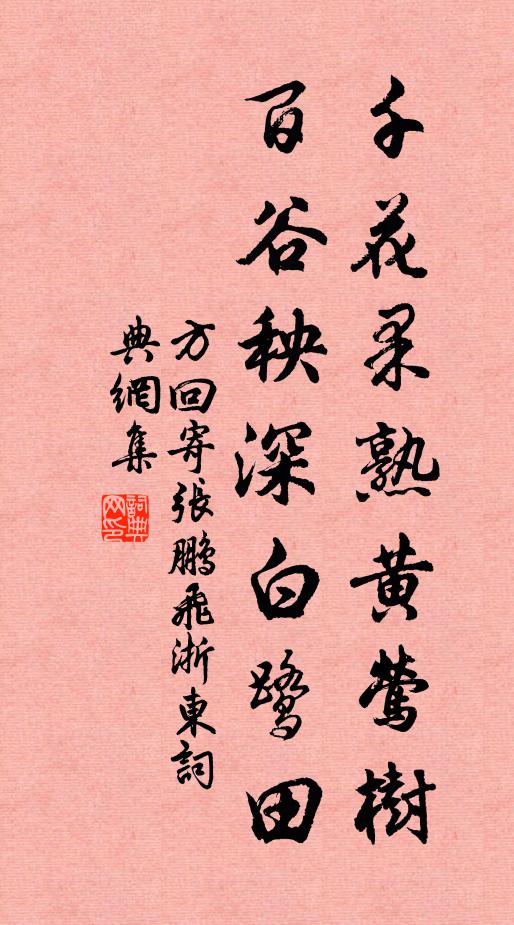 千花果熟黄鶯樹
百谷秧深白鷺田
方回寄張鵬飛浙東詞
典網集
詞典
网印